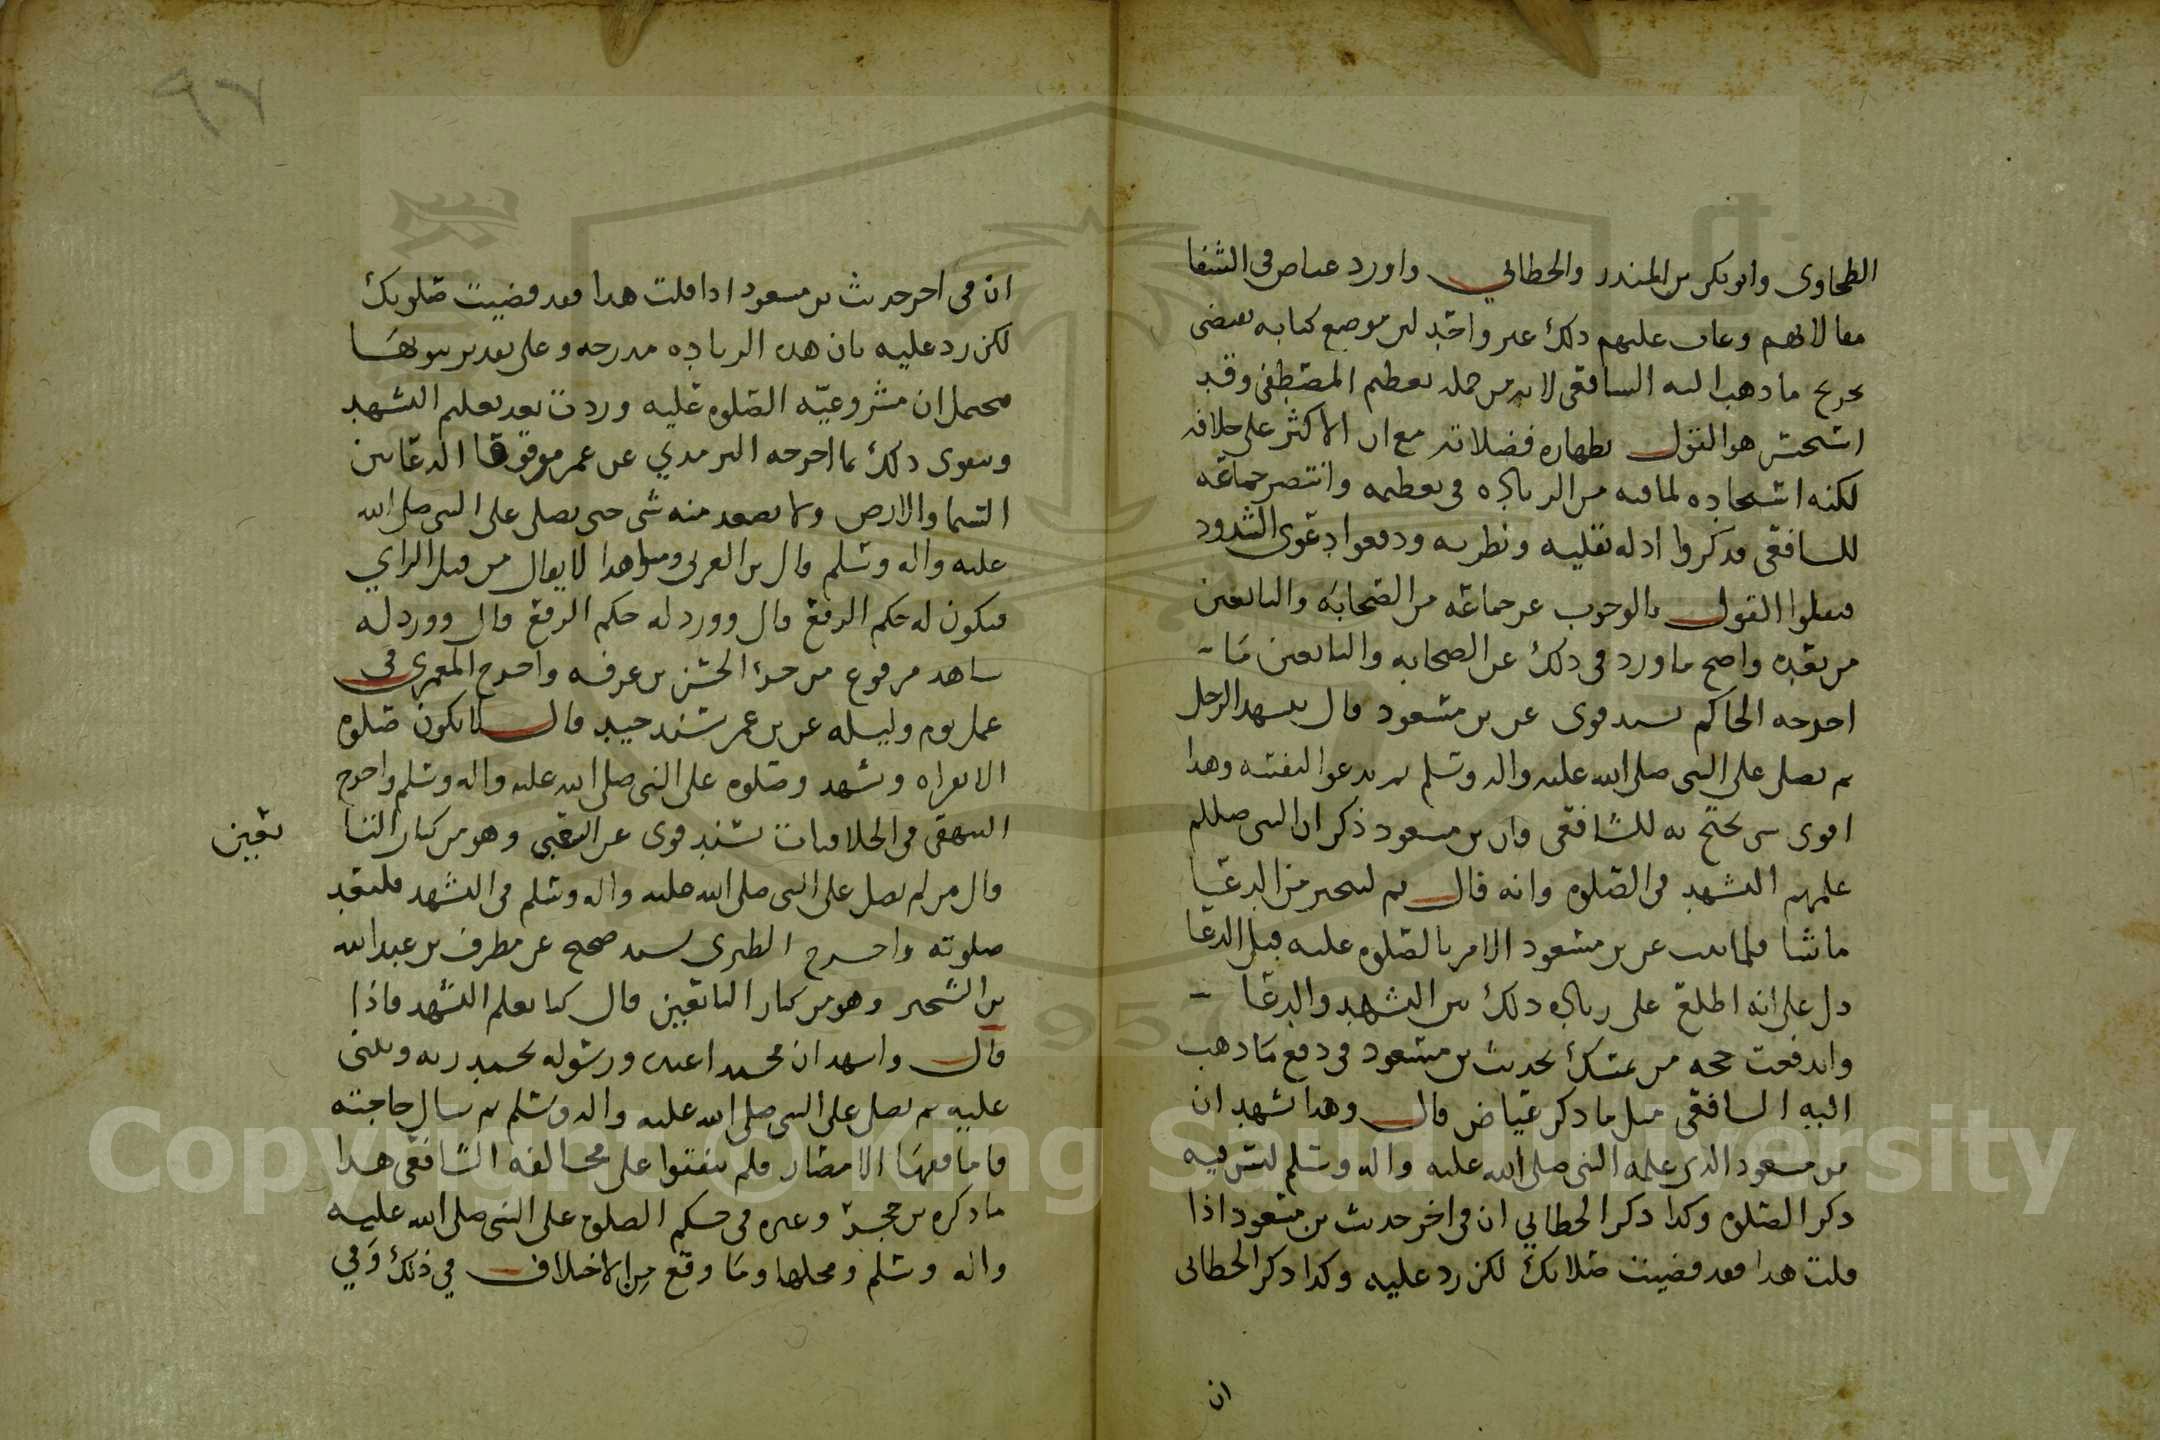 الطحاوى وابو بكر بن المنذر والخطابي واورد عياض في الشفا
مقالاتهم وعاب عليهم ذلك غير واحد لان موضع كتابه يقتضى
ما ذهب اليه الشافعى لانه من جملة تعظيم المصطفى وقد
استحسن هو القول بطهارة فضلاته مع ان الاكثر على خلافه
لكنه استجاده لما فيه من الزيادة في تعظيمه وانتصر جماعة
للشافعى فذكروا ادلة نقلية ونظرية ودفعوا دعوى الشذوذ
فنقلوا القول بالوجوب عن جماعة من الصحابة والتابعين
من بعده واصح ما ورد في ذلك عن الصحابة والتابعين ما
اخرجه الحاكم بسند قوى عن بن مسعود قال يتشهد الرجل
ثم يصلى على النبى صلى الله عليه واله وسلم ثم يدعوا لنفسه وهذا
اقوى شى يحتج به للشافعى فان بن مسعود ذكر ان النبى صللم
علمهم التشهد في الصلوة وانه قال ثم ليتخير من الدعا
ما شا فلما ثبت عن بن مسعود الامر بالصلوة عليه قبل الدعا
دل على انه اطلع على زيادة ذلك بين التشهد والدعا
واندفعت حجة من تمسك بحديث بن مسعود في دفع ما ذهب
اليه الشافعى مثل ما ذكر عياض قال وهذا تشهد ان
بن مسعود الذى علمه النبى صلى الله عليه واله وسلم ليس فيه
ذكر الصلوة وكذا ذكر الخطابي ان في اخر حديث بن مسعود اذا
قلت هذا فقد قضيت صلاتك لكن رد عليه وكذا ذكر الخطابى
ان
ان في اخر حديث بن مسعود اذا قلت هذا فقد قضيت صلوتك
لكن رد عليه بان هذه الزيادة مدرجة وعلى تقدير ثبوتها
فيحتمل ان مشروعية الصلوة عليه وردت بعد تعليم التشهد
ويتقوى ذلك بما اخرجه الترمذي عن عمر موقوفا الدعا بين
السما والارض ولا يصعد منه شى حتى يصلى على النبى صلى الله
عليه واله وسلم قال بن العربى ومثل هذا لا يقال من قبل الراي
فيكون له حكم الرفع قال وورد له حكم الرفع قال وورد له
شاهد مرفوع من جزء الحسن بن عرفة واخرج المعمرى في
عمل يوم وليلة عن بن عمر بسند جيد قال لا يكون صلوة
الا بقراة وتشهد وصلوة على النبى صلى الله عليه واله وسلم واخرج
البيهقى في الخلافيات بسند قوى عن الشعبى وهو من كبار التا
بعين
قال من لم يصل على النبى صلى الله عليه واله وسلم في التشهد فليعد
صلوته واخرج الطبرى بسند صحيح عن مطرف بن عبد الله
بن الشخير وهو من كبار التابعين قال كنا نعلم التشهد فاذا
قال واشهد ان محمدا عبده ورسوله يحمد ربه ويثنى
عليه ثم يصلى على النبى صلى الله عليه واله وسلم ثم يسال حاجته
فاما فقها الامصار فلم يتفقوا على مخالفة الشافعى هذا
ما ذكره بن حجر وغيره في حكم الصلوة على النبى صلى الله عليه
واله وسلم ومحلها وما وقع من الاختلاف في ذلك وفي
Copyright © King Saud University
1957